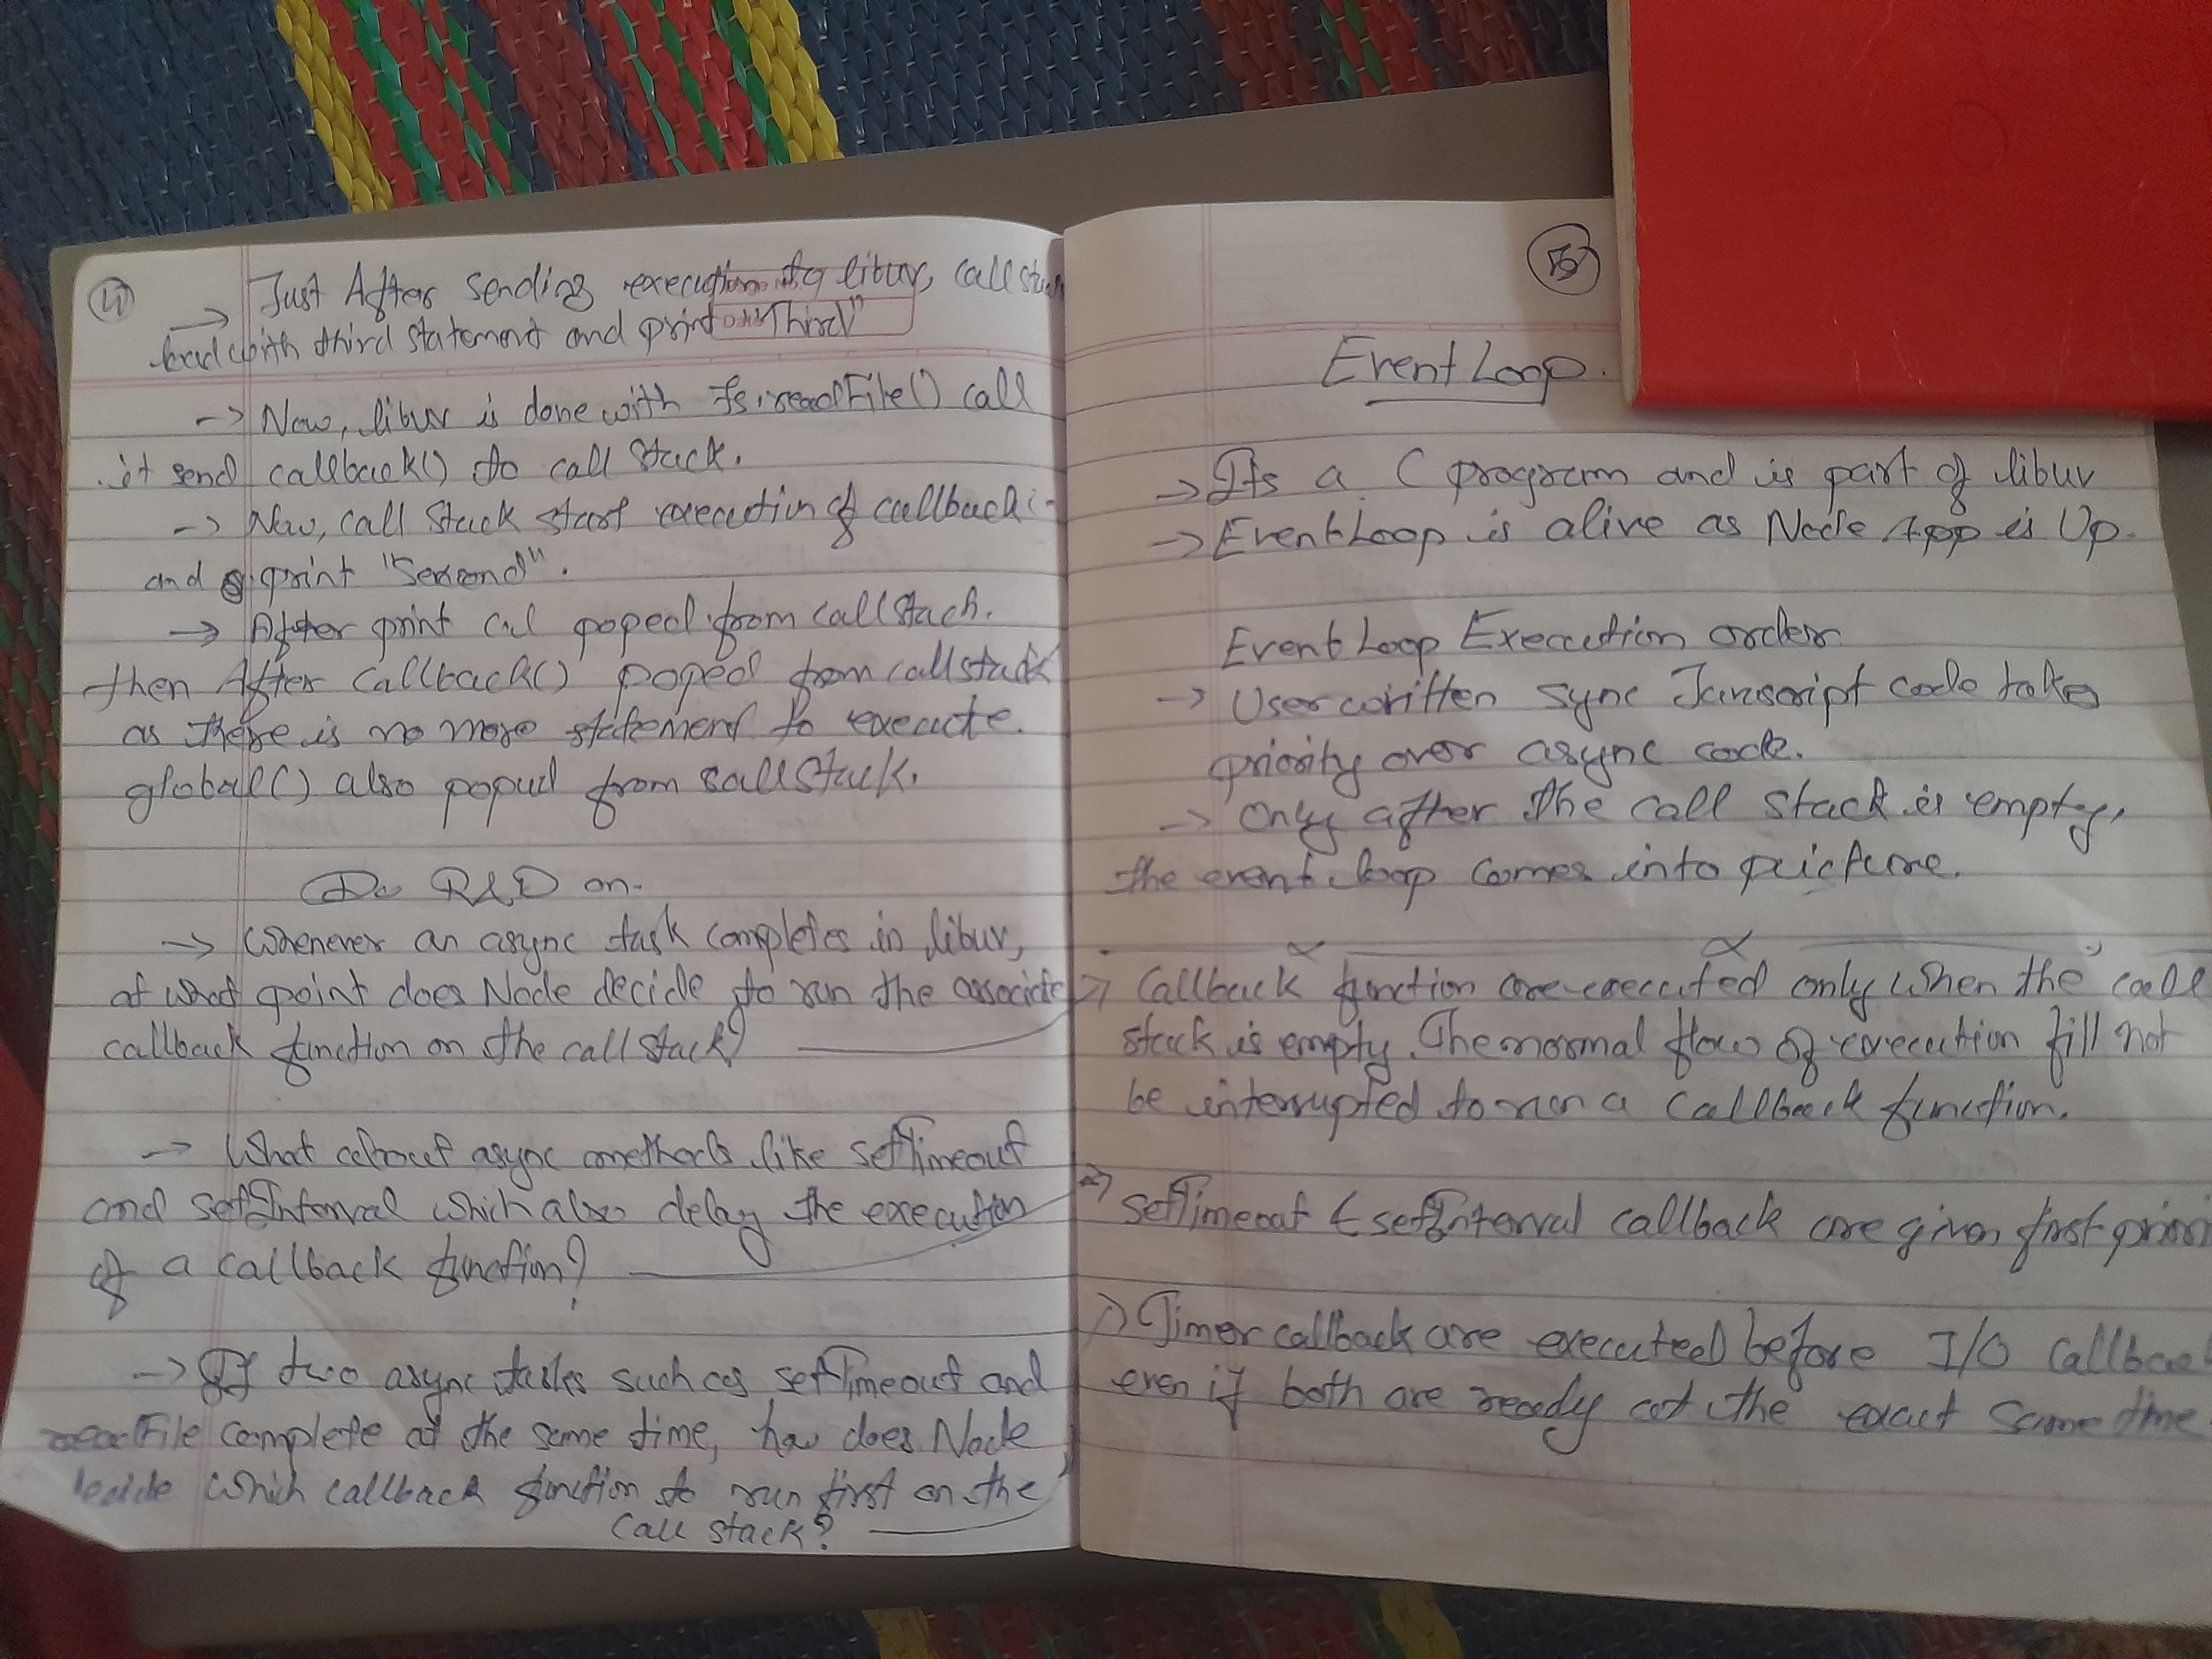 4
→ Just After sending execution to libuv, call stack
load with third statement and print "Third"
→ Now, libuv is done with fs.readFile() call
it send callback() to call stack.
→ Now, call stack start execution of callback
and print "Second".
→ After print cl poped from callstach.
then After callback() poped from callstack
as there is no more statement to execute.
global() also poped from callstack.
Do R&D on-
→ Whenever an async task completes in libuv,
at what point does Node decide to run the associate
callback function on the callstack?
→ What about async methods like setTimeout
and setInterval which also delay the execution
of a callback function?
→ If two async tasks such as setTimeout and
readFile complete at the same time, how does Node
decide which callback function to run first on the
call stack?
5
Event Loop.
→ Its a C program and is part of libuv
→ EventLoop is alive as Node App is Up.
Event Loop Execution order
→ User written sync Javascript code takes
priority over async code.
→ Only after the call stack is empty,
the event loop comes into puicture.
→ Callback function are executed only when the call
stack is empty. The normal flow of execution fill not
be interrupted to run a callback function.
→ setTimeout & setInterval callback are given first priori
→ Timer callback are executed before I/O callback
even if both are ready at the exact same time